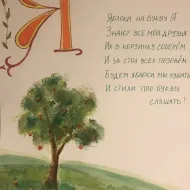 Я
Яблоки на букву Я
Знают все мои друзья
Их в корзинку соберём
И за стол всех позовём
Будем яблоки мы кушать
И стихи про буквы
слушать!